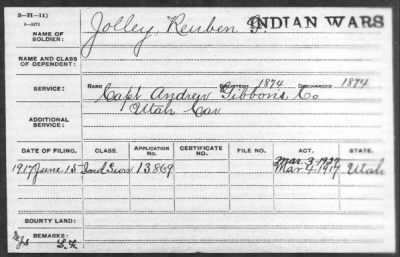 3—FI—111
6—2572
Jolley, Reuben G. INDIAN WARS
NAME OF SOLDIER:
NAME AND CLASS OF DEPENDENT:
SERVICE:
RANK ENLISTED 1874 DISCHARGED 1874
Capt. Andrew Gibbons Co
Utah Cav
ADDITIONAL SERVICE:
DATE OF FILING. CLASS. APPLICATION NO. CERTIFICATE NO. FILE NO. ACT. STATE.
Mar. 3-1927
1917 June 15 Ind Surv 13869 Mar 4 1917 Utah
BOUNTY LAND:
REMARKS: